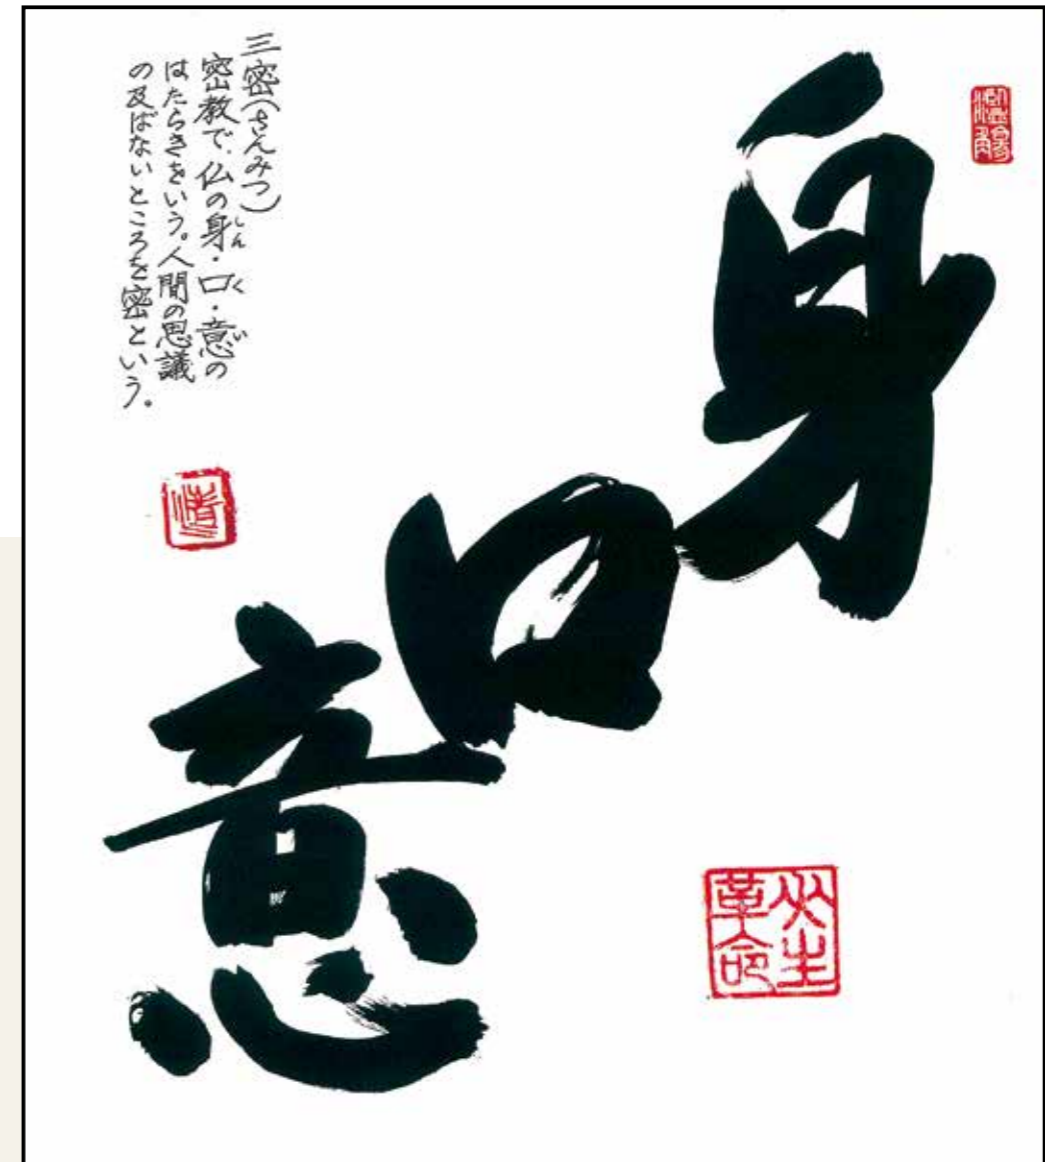 身
口
意
三密(さんみつ)
密教で、仏の身・口・意の
しん く い
はたらきをいう。人間の思議
の及ばないところを密という。
革命